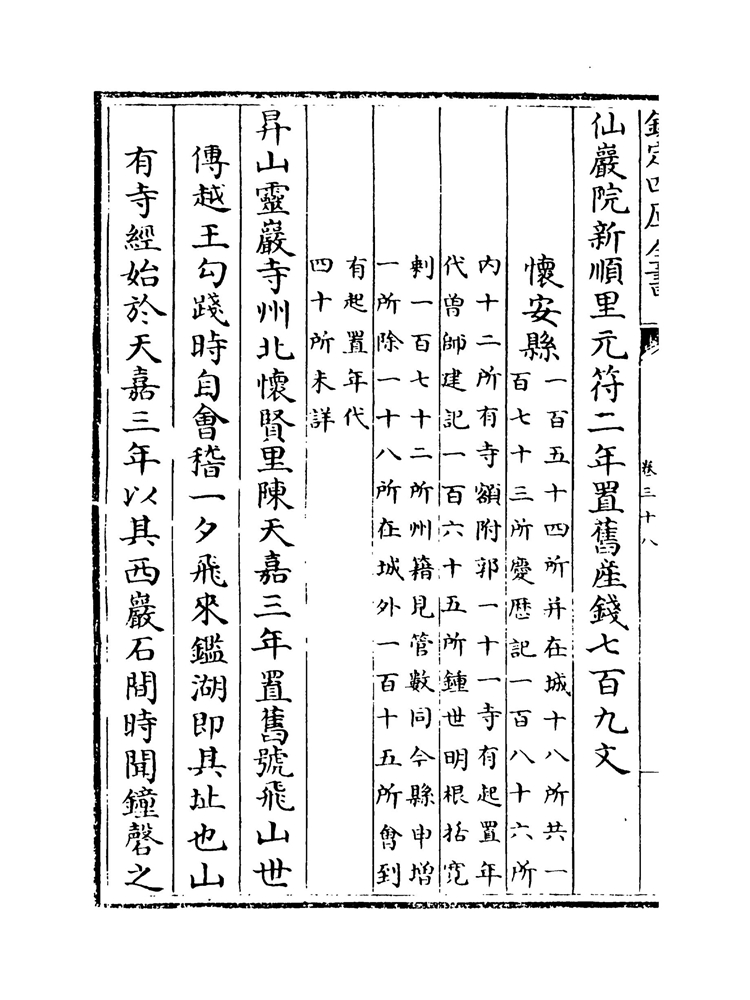 欽定四庫全書
卷三十八
仙巖院新順里元符二年置舊産錢七百九文
懷安縣
一百五十四所并在城十八所共一
百七十三所慶歴記一百八十六所
内十二所有寺額附郭一十一寺有起置年
代曽師建記一百六十五所鍾世明根括寛
剰一百七十二所州籍見管數同今縣申增
一所除一十八所在城外一百十五所㑹到
有起置年代
四十所未詳
昇山靈巖寺州北懷賢里陳天嘉三年置舊號飛山世
傳越王勾踐時自㑹稽一夕飛來鑑湖即其址也山
有寺經始於天嘉三年以其西巖石間時聞鐘磬之